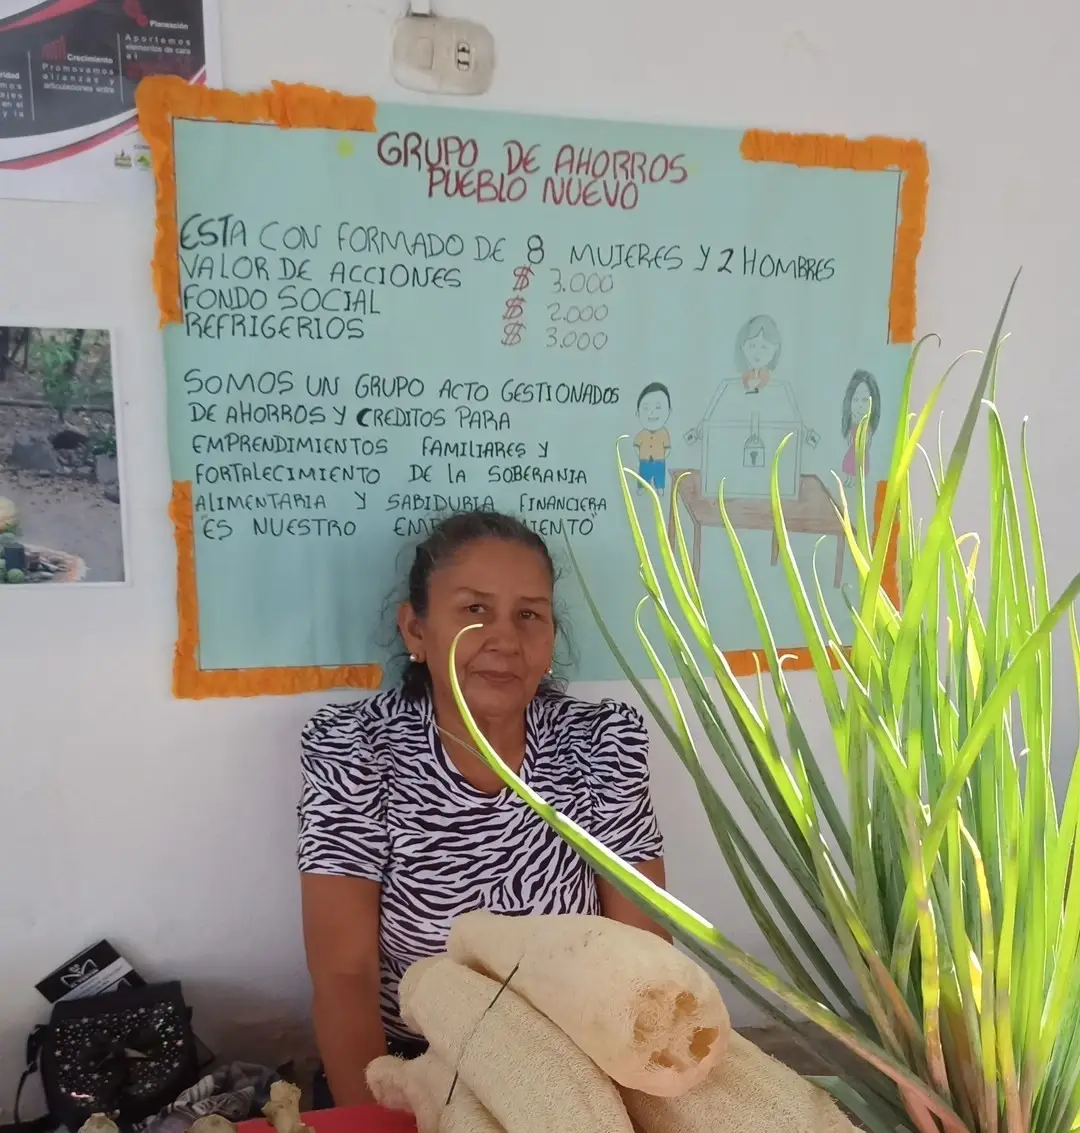 Planeación
Aportamos
elementos de cara
al
Crecimiento
Promovemos
alianzas y
articulaciones entre
GRUPO DE AHORROS
PUEBLO NUEVO
ESTA CON FORMADO DE 8 MUJERES Y 2 HOMBRES
VALOR DE ACCIONES $ 3.000
FONDO SOCIAL $ 2.000
REFRIGERIOS $ 3.000
SOMOS UN GRUPO ACTO GESTIONADOS
DE AHORROS Y CREDITOS PARA
EMPRENDIMIENTOS FAMILIARES Y
FORTALECIMIENTO DE LA SOBERANIA
ALIMENTARIA Y SABIDURIA FINANCIERA
"ES NUESTRO